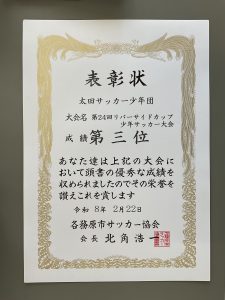 表彰状
太田サッカー少年団
大会名 第24回リバーサイドカップ
少年サッカー大会
成績 第三位
あなた達は上記の大会に
おいて頭書の優秀な成績を
収められましたのでその栄誉を
讃えこれを賞します
令和 8年 2月22日
各務原市サッカー協会
会長 北角浩一